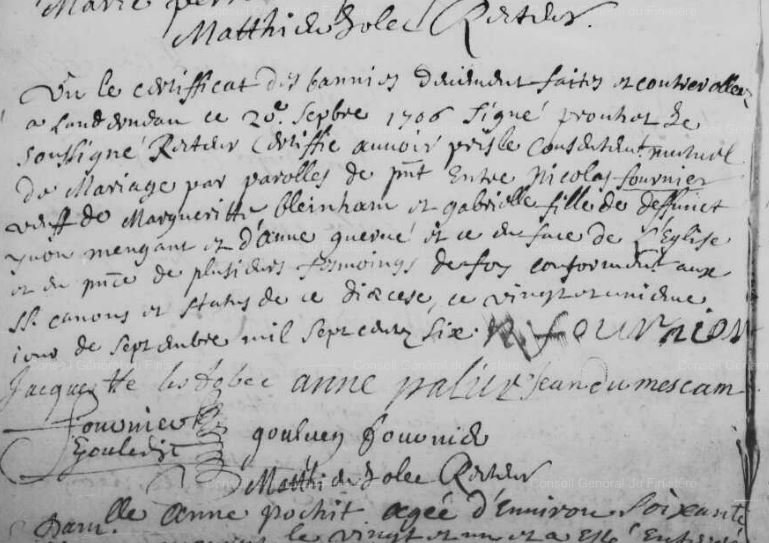 Marie
Matthieu Rolec Recteur.
Vu le certifficat des bannies deuement faites et controllees
a Landerneau ce 20e. Sepbre 1706 signé prouhet Je
soussigné Recteur Certiffie auuoir pris le consentemt. mutuel
de Mariage par parolles de pnt Entre Nicolas fournier
veuff de Margueritte bleinhant et gabrielle fille de deffunct
yuon mengant et d'anne querné et ce en face de L'Eglise
et en pnce de plusieurs tesmoings de foy conformemt aux
SS. canons et statuts de ce diœcese, ce vingt et unieme
iour de septembre mil sept cents six. N fournier
Jacquette anne palier Jean du mescam
fournier
goulven fournier
Matthieu Rolec Recteur
Dam.lle Anne pochit agée d'Environ soixante
le vingt et un et a Esté Enterré